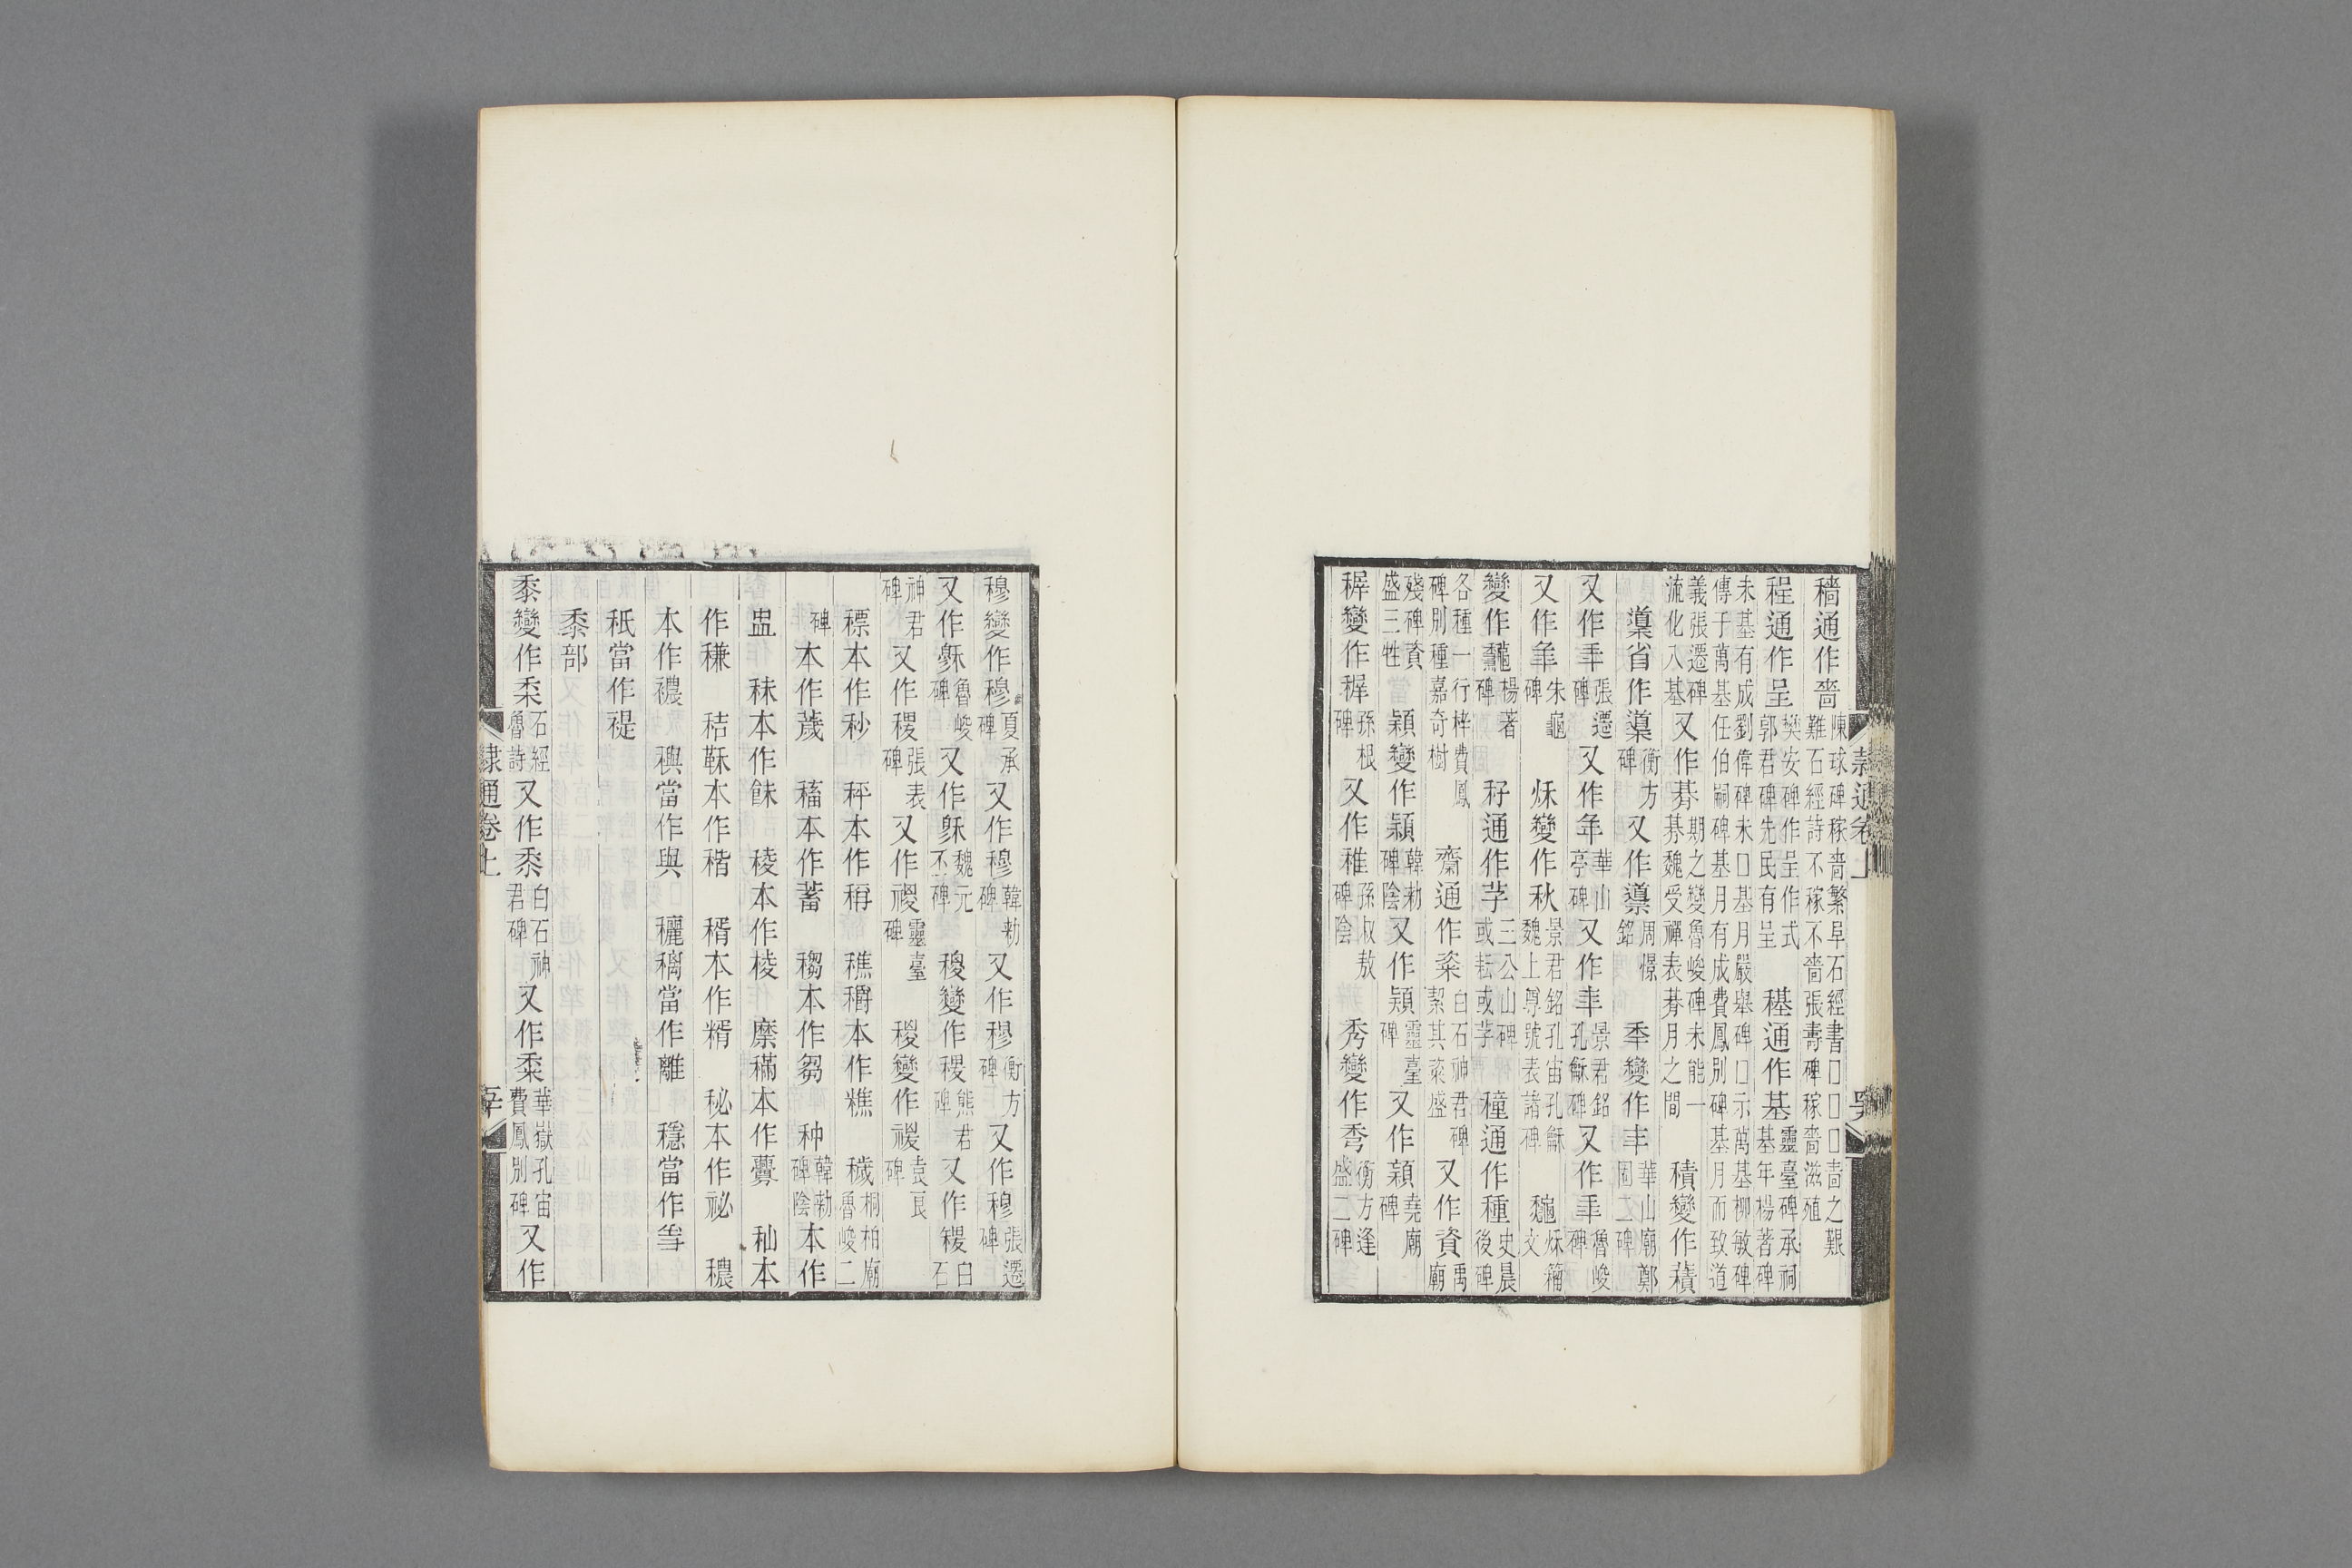 穡通作嗇陳球碑稼嗇繁阜石經書□□□嗇之艱難石經詩不稼不嗇張壽碑稼嗇滋殖
程通作呈樊安碑作呈作式郭君碑先民有呈　稘通作基靈臺碑承祠基年楊著碑
未基有成劉偉碑未□基月嚴舉碑□示萬基柳敏碑傳于萬基任伯嗣碑基月有成費鳳別碑基月而致道
義張遷碑流化八基又作朞朞期之變魯峻碑未能一朞魏受禪表朞月之間　積變作積
䆃省作䆃衡方碑又作導周憬銘　秊變作丰華山廟鄭固二碑
又作秊張遷碑又作年華山亭碑又作秊景君銘孔龢碑又作秊魯峻碑
又作秊朱龜碑　秌變作秋景君銘孔宙孔龢魏上尊號表諸碑　龝秌籀文
變作龝楊著碑　秄通作芓三公山碑或耘或芓　穜通作種史晨後碑
各種一行梓費鳳碑別種嘉奇樹　齋通作粢白石神君碑絜其粢盛又作資禹廟
殘碑資盛三牲　穎變作穎韓勑碑陰又作頴靈臺碑又作穎堯廟碑
穉變作稺孫根碑又作稚孫叔敖碑陰　秀變作秀衡方逢盛二碑
穆變作穆夏承碑又作穆韓勑碑又作穆衡方碑又作穆張遷碑
又作穌魯峻碑又作穌魏元丕碑　稷變作稷熊君碑又作稷白石
神君碑又作稷張表碑又作禝靈臺碑　稯變作禝袁良碑
標本作秒　秤本作稱　穛穱本作糕　穢桐柏廟魯峻二
碑本作薉　稸本作蓄　穊本作芻　种韓勑碑陰本作
盅　秣本作䬴　稜本作棱　穈穤本作虋　秈本
作稴　秸䅥本作稭　稰本作糈　秘本作祕　穠
本作襛　穥當作與　穲穲當作離　穩當作㥯
秖當作禔
黍部
黍變作桼石經魯詩又作黍白石神君碑又作黍華嶽孔宙費鳳別碑又作
隸通卷上